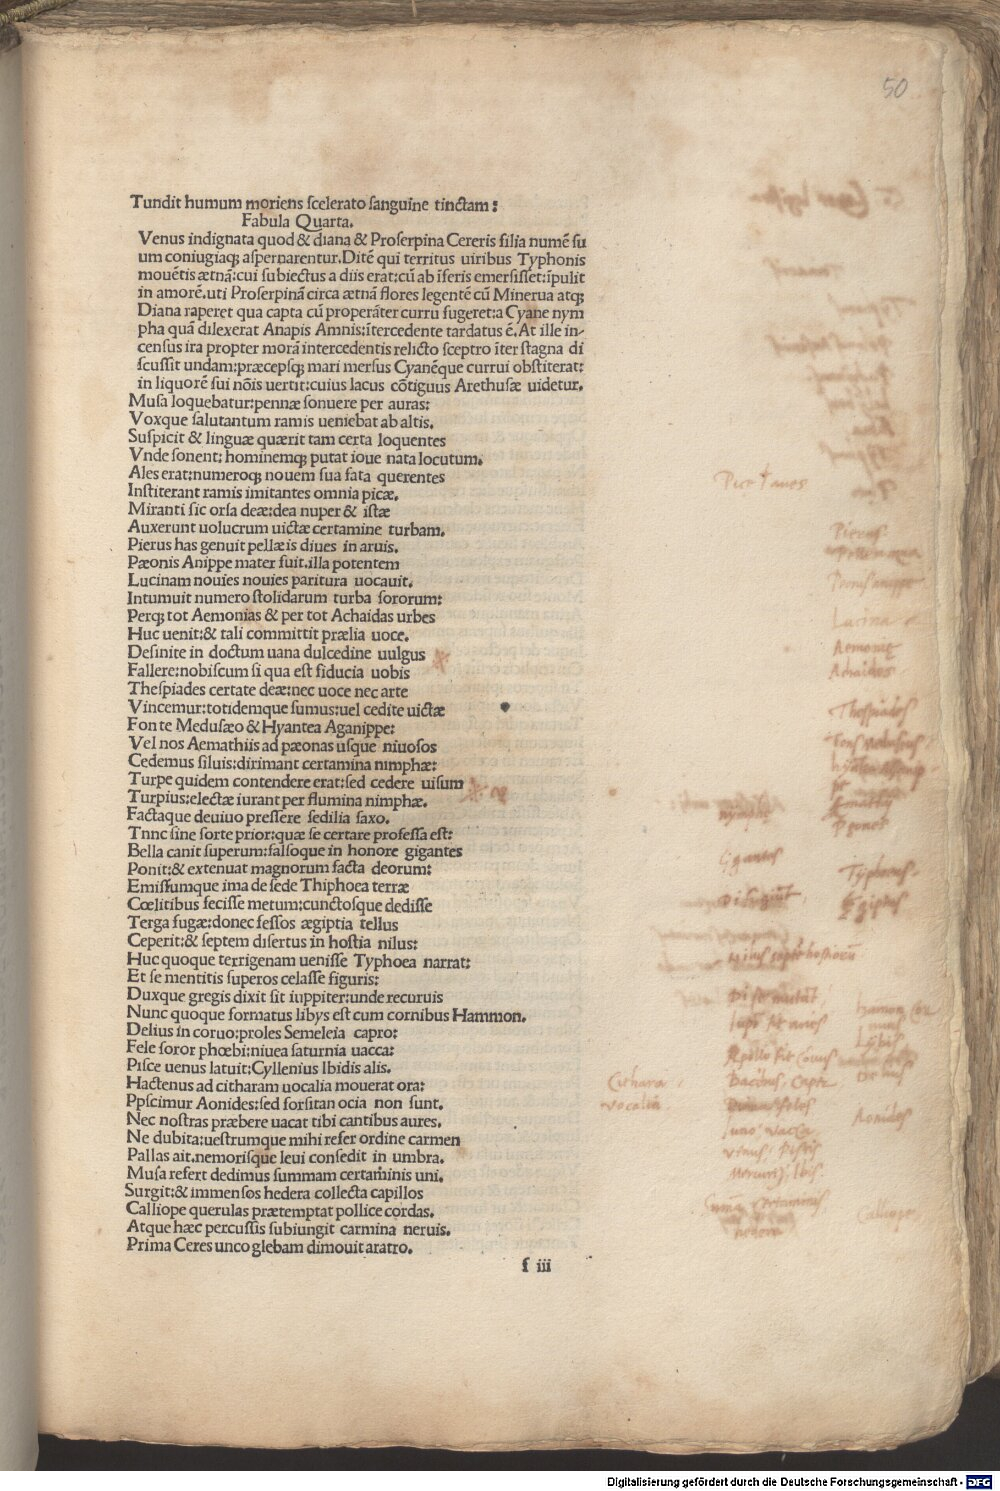 50
Tundit humum moriens scelerato sanguine tinctam:
Fabula Quarta.
Venus indignata quod & diana & Proserpina Cereris filia numē su
um coniugiaq; aspernarentur. Ditē qui territus uiribus Typhonis
mouētis ætnā: cui subiectus a diis erat: cū ab īferis emersisset: īpulit
in amorē. uti Proserpinā circa ætnā flores legentē cū Minerua atq;
Diana raperet qua capta cū properāter curru fugeret: a Cyane nym
pha quā dilexerat Anapis Amnis: ītercedente tardatus ē. At ille in-
census ira propter morā intercedentis relicto sceptro īter stagna di
scussit undam: præcepsq; mari mersus Cyanēque currui obstiterat:
in liquorē sui nōis uertit: cuius lacus cōtiguus Arethusæ uidetur.
Musa loquebatur: pennæ sonuere per auras:
Voxque salutantum ramis ueniebat ab altis.
Suspicit & linguæ quærit tam certa loquentes
Vnde sonent: hominemq; putat ioue nata locutum.
Ales erat: numeroq; nouem sua fata querentes
Institerant ramis imitantes omnia picæ.
Miranti sic orsa deæ: dea nuper & istæ
Auxerunt uolucrum uictæ certamine turbam.
Pierus has genuit pellæis diues in aruis.
Pæonis Anippe mater fuit. illa potentem
Lucinam nouies nouies paritura uocauit.
Intumuit numero stolidarum turba sororum:
Perq; tot Aemonias & per tot Achaidas urbes
Huc uenit: & tali committit prælia uoce.
Desinite in doctum uana dulcedine uulgus
Fallere: nobiscum si qua est fiducia uobis
Thespiades certate deæ: nec uoce nec arte
Vincemur: totidemque sumus: uel cedite uictæ
Fon te Medusæo & Hyantea Aganippe:
Vel nos Aemathiis ad pæonas usque niuosos
Cedemus siluis: dirimant certamina nimphæ:
Turpe quidem contendere erat: sed cedere uisum
Turpius: electæ iurant per flumina nimphæ.
Factaque deuiuo pressere sedilia saxo.
Tnnc sine sorte prior: quæ se certare professa est:
Bella canit superum: falsoque in honore gigantes
Ponit: & extenuat magnorum facta deorum:
Emissumque ima de sede Thiphoea terræ
Cœlitibus fecisse metum: cunctosque dedisse
Terga fugæ: donec fessos ægiptia tellus
Ceperit: & septem disertus in hostia nilus:
Huc quoque terrigenam uenisse Typhoea narrat:
Et se mentitis superos celasse figuris:
Duxque gregis dixit sit iuppiter: unde recuruis
Nunc quoque formatus libys est cum cornibus Hammon.
Delius in coruo: proles Semeleia capro:
Fele soror phœbi: niuea saturnia uacca:
Pisce uenus latuit: Cyllenius Ibidis alis.
Hactenus ad citharam uocalia mouerat ora:
Ppscimur Aonides: sed forsitan ocia non sunt.
Nec nostras præbere uacat tibi cantibus aures.
Ne dubita: uestrumque mihi refer ordine carmen
Pallas ait. nemorisque leui consedit in umbra.
Musa refert dedimus summam certaminis uni.
Surgit: & immensos hedera collecta capillos
Calliope querulas prætemptat pollice cordas.
Atque hæc percussis subiungit carmina neruis.
Prima Ceres unco glebam dimouit aratro.
f iii
Pierus
Lucina
Aemonię
Achaidos
Thespiades
nymphę
Gigantes
Typhoeus
Egiptus
Cithara
vocalia
Aonides
Calliope
Digitalisierung gefördert durch die Deutsche Forschungsgemeinschaft - DFG